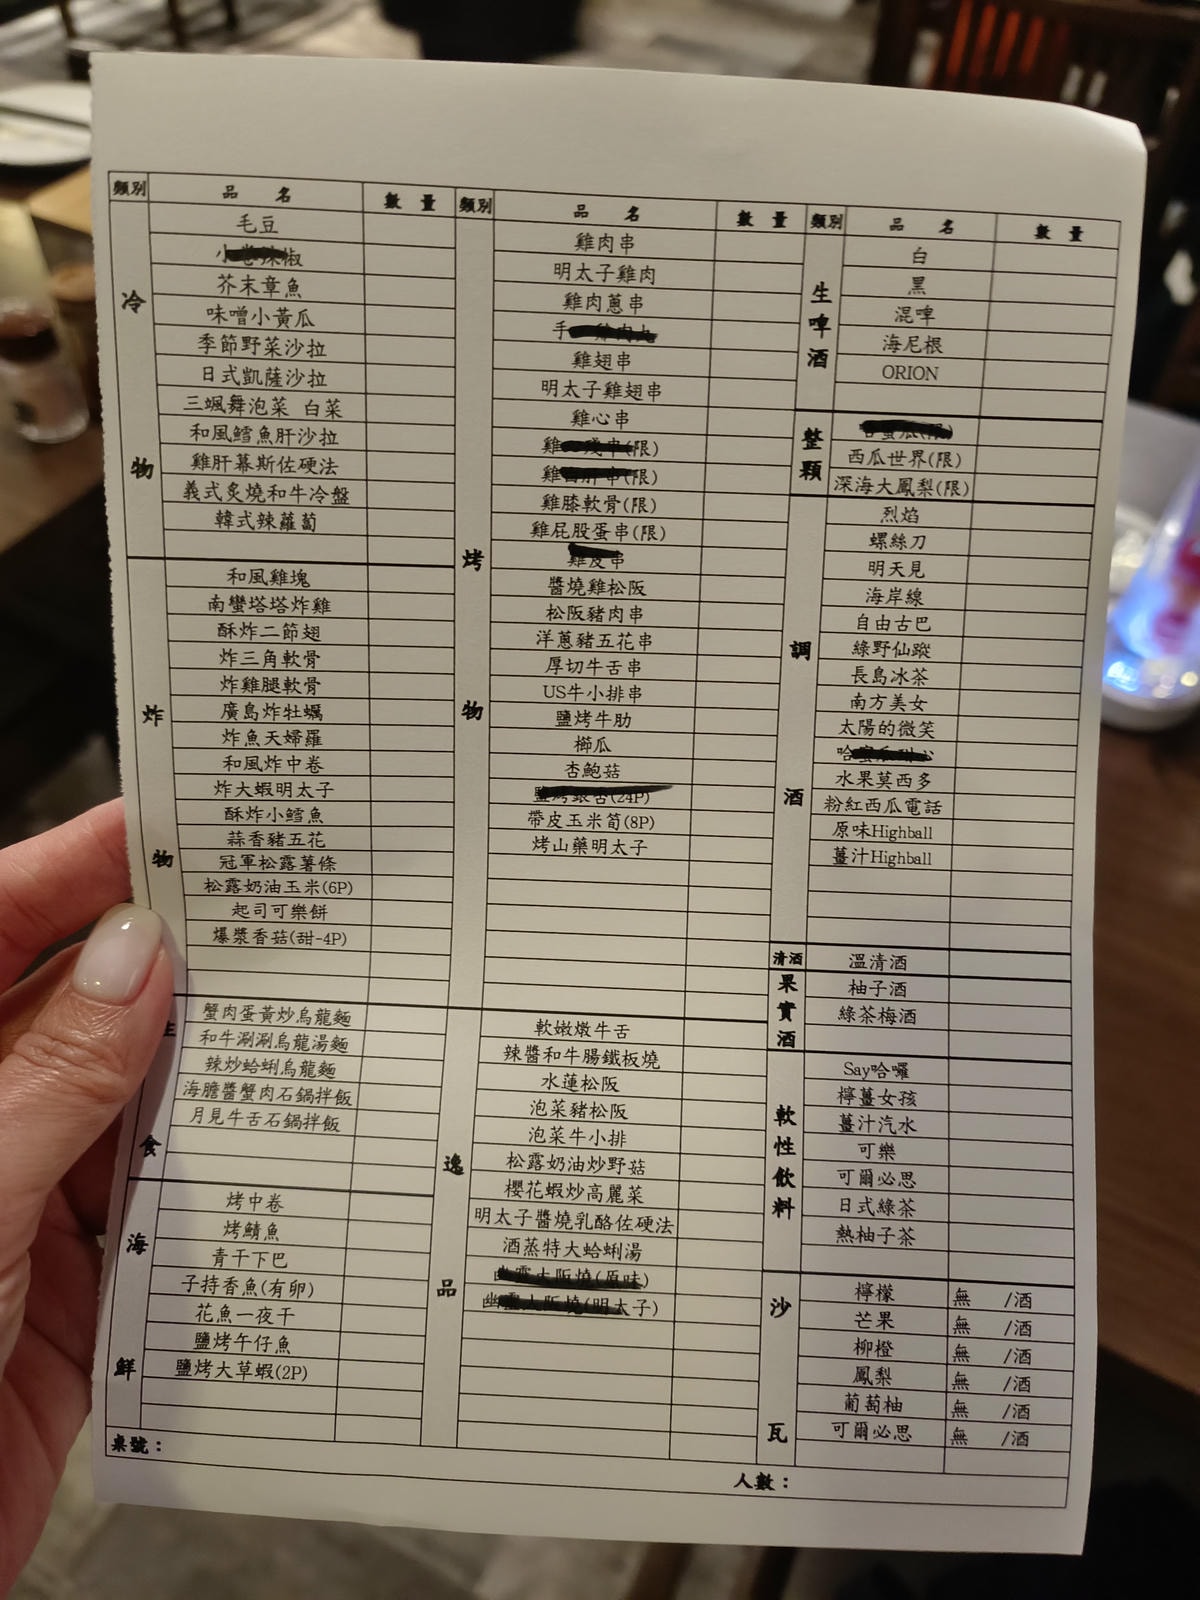 類別 品 名 數 量
冷物
毛豆
芥末章魚
味噌小黃瓜
季節野菜沙拉
日式凱薩沙拉
三颯舞泡菜 白菜
和風鱈魚肝沙拉
雞肝幕斯佐硬法
義式炙燒和牛冷盤
韓式辣蘿蔔
炸物
和風雞塊
南蠻塔塔炸雞
酥炸二節翅
炸三角軟骨
炸雞腿軟骨
廣島炸牡蠣
炸魚天婦羅
和風炸中卷
炸大蝦明太子
酥炸小鱈魚
蒜香豬五花
冠軍松露薯條
松露奶油玉米(6P)
起司可樂餅
爆漿香菇(甜-4P)
主食
蟹肉蛋黃炒烏龍麵
和牛涮涮烏龍湯麵
辣炒蛤蜊烏龍麵
海膽醬蟹肉石鍋拌飯
月見牛舌石鍋拌飯
海鮮
烤中卷
烤鯖魚
青干下巴
子持香魚(有卵)
花魚一夜干
鹽烤午仔魚
鹽烤大草蝦(2P)
桌號：
類別 品 名 數 量
烤物
雞肉串
明太子雞肉
雞肉蔥串
手
雞翅串
明太子雞翅串
雞心串
雞 (限)
雞 (限)
雞膝軟骨(限)
雞屁股蛋串(限)
雞皮串
醬燒雞松阪
松阪豬肉串
洋蔥豬五花串
厚切牛舌串
US牛小排串
鹽烤牛肋
櫛瓜
杏鮑菇
鹽烤銀杏(24P)
帶皮玉米筍(8P)
烤山藥明太子
逸品
軟嫩燉牛舌
辣醬和牛腸鐵板燒
水蓮松阪
泡菜豬松阪
泡菜牛小排
松露奶油炒野菇
櫻花蝦炒高麗菜
明太子醬燒乳酪佐硬法
酒蒸特大蛤蜊湯
大阪燒(原味)
幽靈大阪燒(明太子)
人數：
類別 品 名 數 量
生啤酒
白
黑
混啤
海尼根
ORION
整顆
哈蜜瓜(限)
西瓜世界(限)
深海大鳳梨(限)
調酒
烈焰
螺絲刀
明天見
海岸線
自由古巴
綠野仙蹤
長島冰茶
南方美女
太陽的微笑
哈蜜瓜甜心
水果莫西多
粉紅西瓜電話
原味Highball
薑汁Highball
清酒
溫清酒
果實酒
柚子酒
綠茶梅酒
軟性飲料
Say哈囉
檸薑女孩
薑汁汽水
可樂
可爾必思
日式綠茶
熱柚子茶
沙瓦
檸檬 無 /酒
芒果 無 /酒
柳橙 無 /酒
鳳梨 無 /酒
葡萄柚 無 /酒
可爾必思 無 /酒